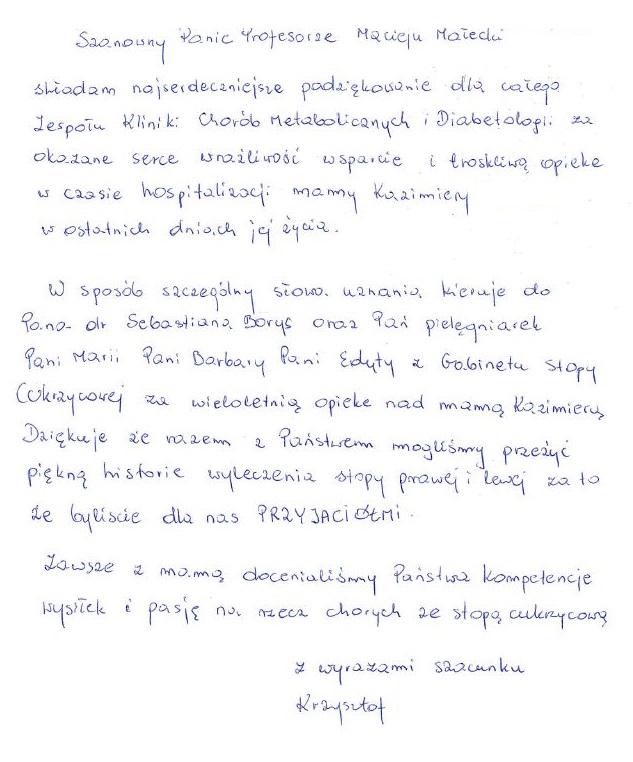 Szanowny Panie Profesorze Macieju Małecki
składam najserdeczniejsze podziękowanie dla całego
Zespołu Kliniki Chorób Metabolicznych i Diabetologii za
okazane serce wrażliwość wsparcie i troskliwą opiekę
w czasie hospitalizacji mamy Kazimiery
w ostatnich dniach jej życia.
W sposób szczególny słowa uznania kieruje do
Pana dr Sebastiana Borys oraz Pań pielęgniarek
Pani Marii Pani Barbary Pani Edyty z Gabinetu Stopy
Cukrzycowej za wieloletnią opiekę nad mamą Kazimierą
Dziękuje że razem z Państwem mogliśmy przeżyć
piękną historie wyleczenia stopy prawej i lewej za to
że byliście dla nas PRZYJACIÓŁMI.
Zawsze z mamą docenialiśmy Państwa kompetencje
wysiłek i pasję na rzecz chorych ze stopą cukrzycową
z wyrazami szacunku
Krzysztof